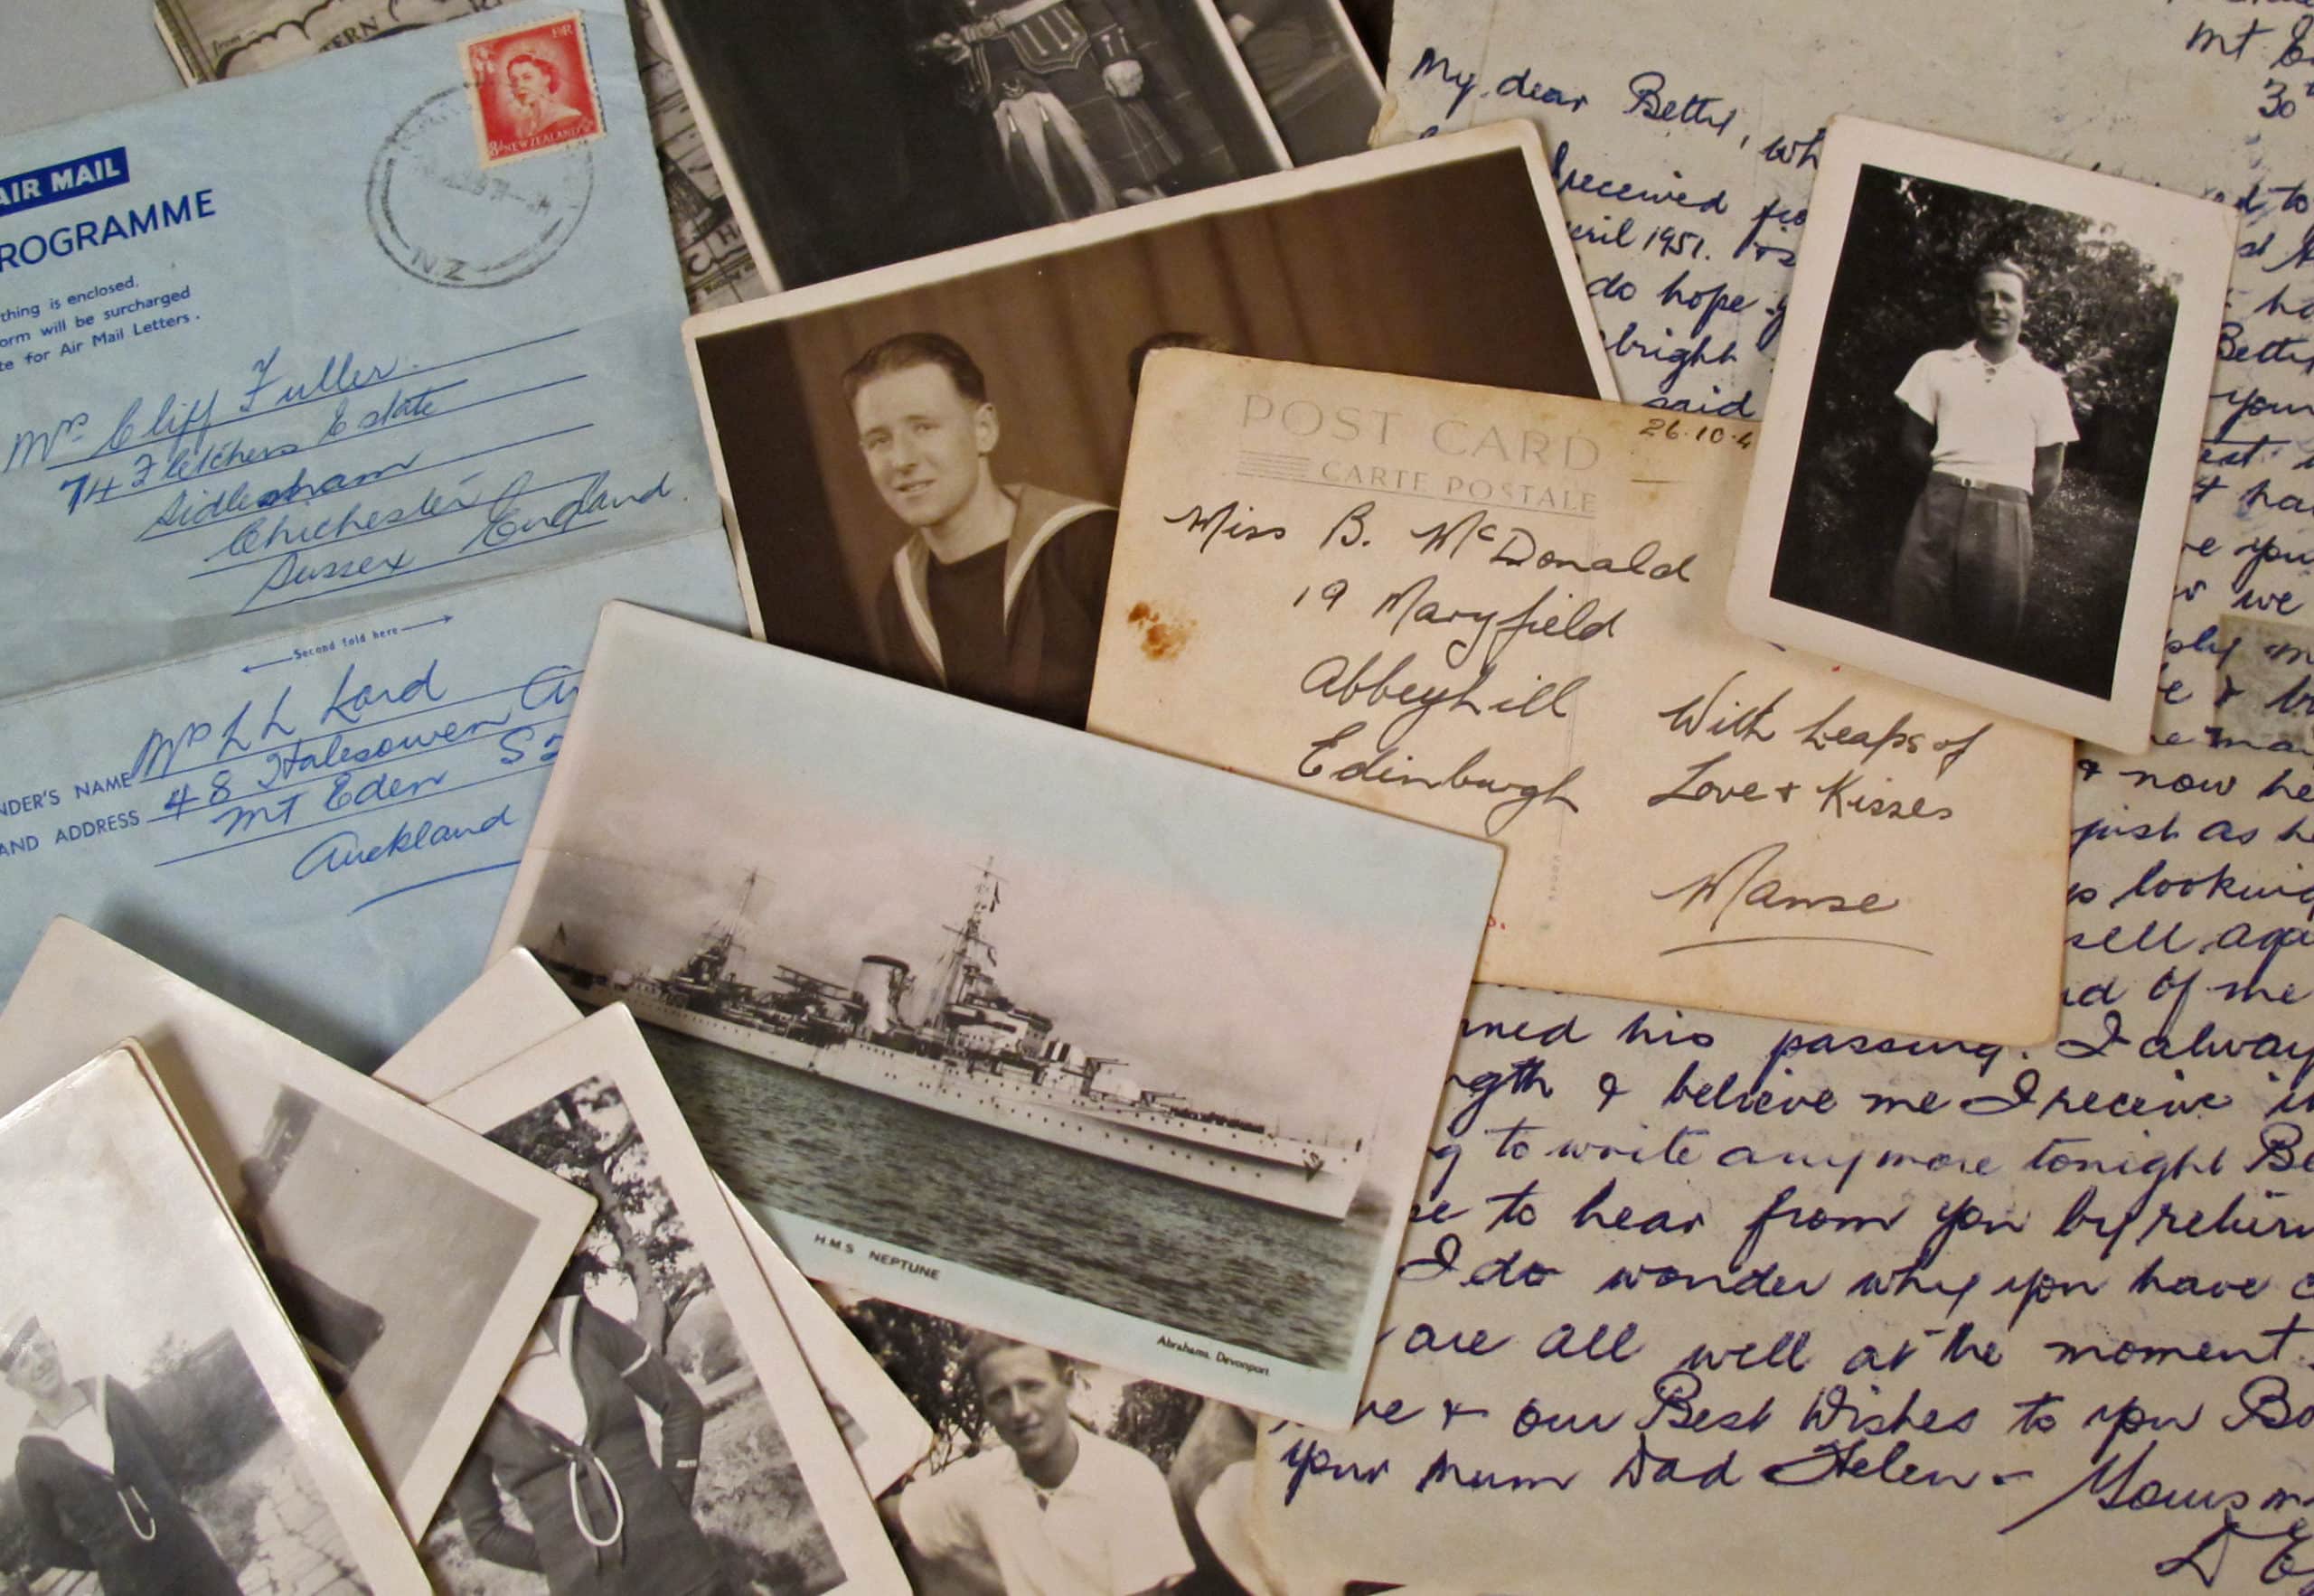 AIR MAIL
ROGRAMME
thing is enclosed,
orm will be surcharged
te for Air Mail Letters.
NEW ZEALAND
NZ
Mrs Cliff Fuller.
74 Fletchers Estate
Sidlesham
Chichester
Sussex England.
Second fold here
NDER'S NAME Mrs L L Lord
AND ADDRESS 48 Halesowen
Mt Eden S2
Auckland
POST CARD
26·10·4
CARTE POSTALE
Miss B. McDonald
19 Maryfield
Abbeyhill
Edinburgh
With heaps of
Love + Kisses
Manse
H.M.S NEPTUNE
Abrahams. Devonport
Mt.
30
My dear Betty, wh
received
ril 1951.
do hope
bright
said
Betty
your
we
now he
just as he
looking
sell
of me
ned his passing. I alway
gth & believe me I receive
g to write anymore tonight Be
se to hear from you by return
I do wonder why you have
are all well at the moment.
ve + our Best Wishes to you Bo
your Mum Dad Helen - Yours